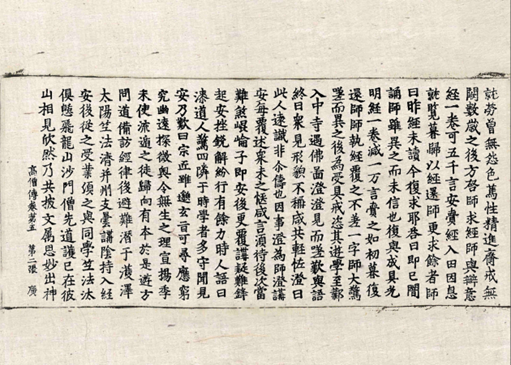 就勞曾無怨色篤性精進齋戒無
闕數歲之後方啓師求經師與辯意
經一卷可五千言安齎經入田因息
就覽暮歸以經還師更求餘者師
曰昨經未讀今復求耶答曰即已闇
誦師雖異之而未信也復與成具光
明經一卷減一万言齎之如初暮復
還師師執經覆之不差一字師大驚
嗟而異之後為受具戒恣其遊學至鄴
入中寺遇佛圖澄澄見而嗟歎與語
終日衆見形貌不稱咸共輕怪澄曰
此人遠識非尒儔也因事澄為師澄講
安每覆述衆未之惬咸言須待後次當
難煞崐崘子即安後更覆講疑難鋒
起安挫銳解紛行有餘力時人語曰
漆道人驚四隣于時學者多守聞見
安乃歎曰宗匠雖邈玄旨可尋應窮
究幽遠探微奧令無生之理宣揚季
末使流遁之徒歸向有本於是遊方
問道備訪經律後避難潛于濩澤
太陽竺法濟并州支曇講陰持入經
安後從之受業頃之與同學竺法汰
俱憩飛龍山沙門僧先道護已在彼
山相見欣然乃共披文属思妙出神
高僧傳卷第五 第二張 廣